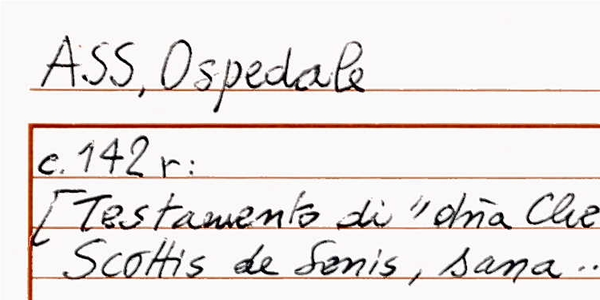 ASS, Ospedale
c. 142 r:
[Testamento di "dña Che
Scottis de Senis, sana ..